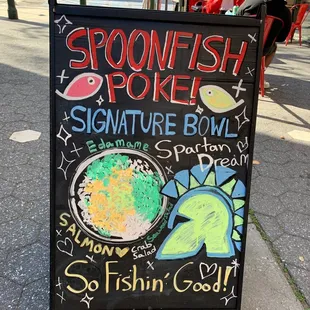 SPOONFISH
POKE!
SIGNATURE BOWL
Edamame
Spartan
Dream
SALMON
Crab
Salad
So Fishin' Good!